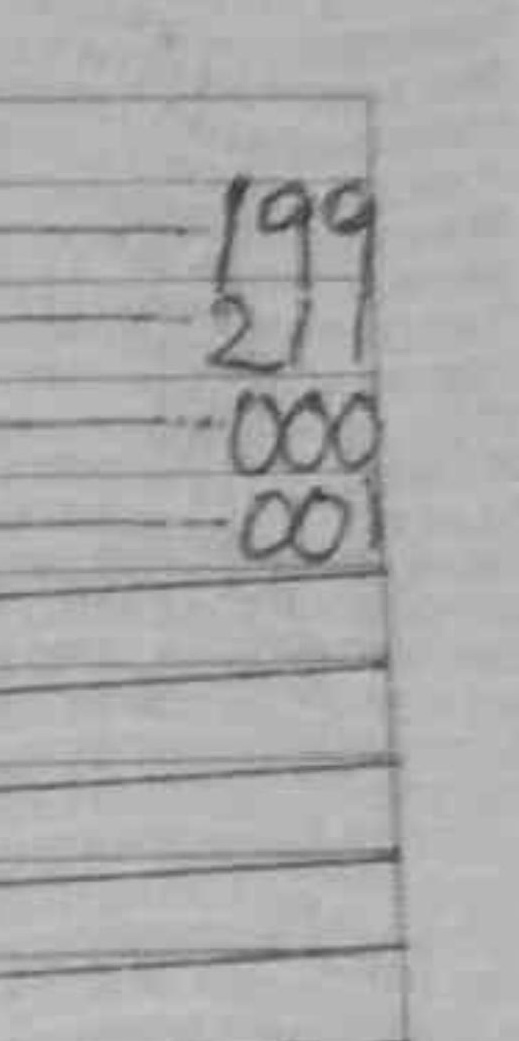 199
211
000
001